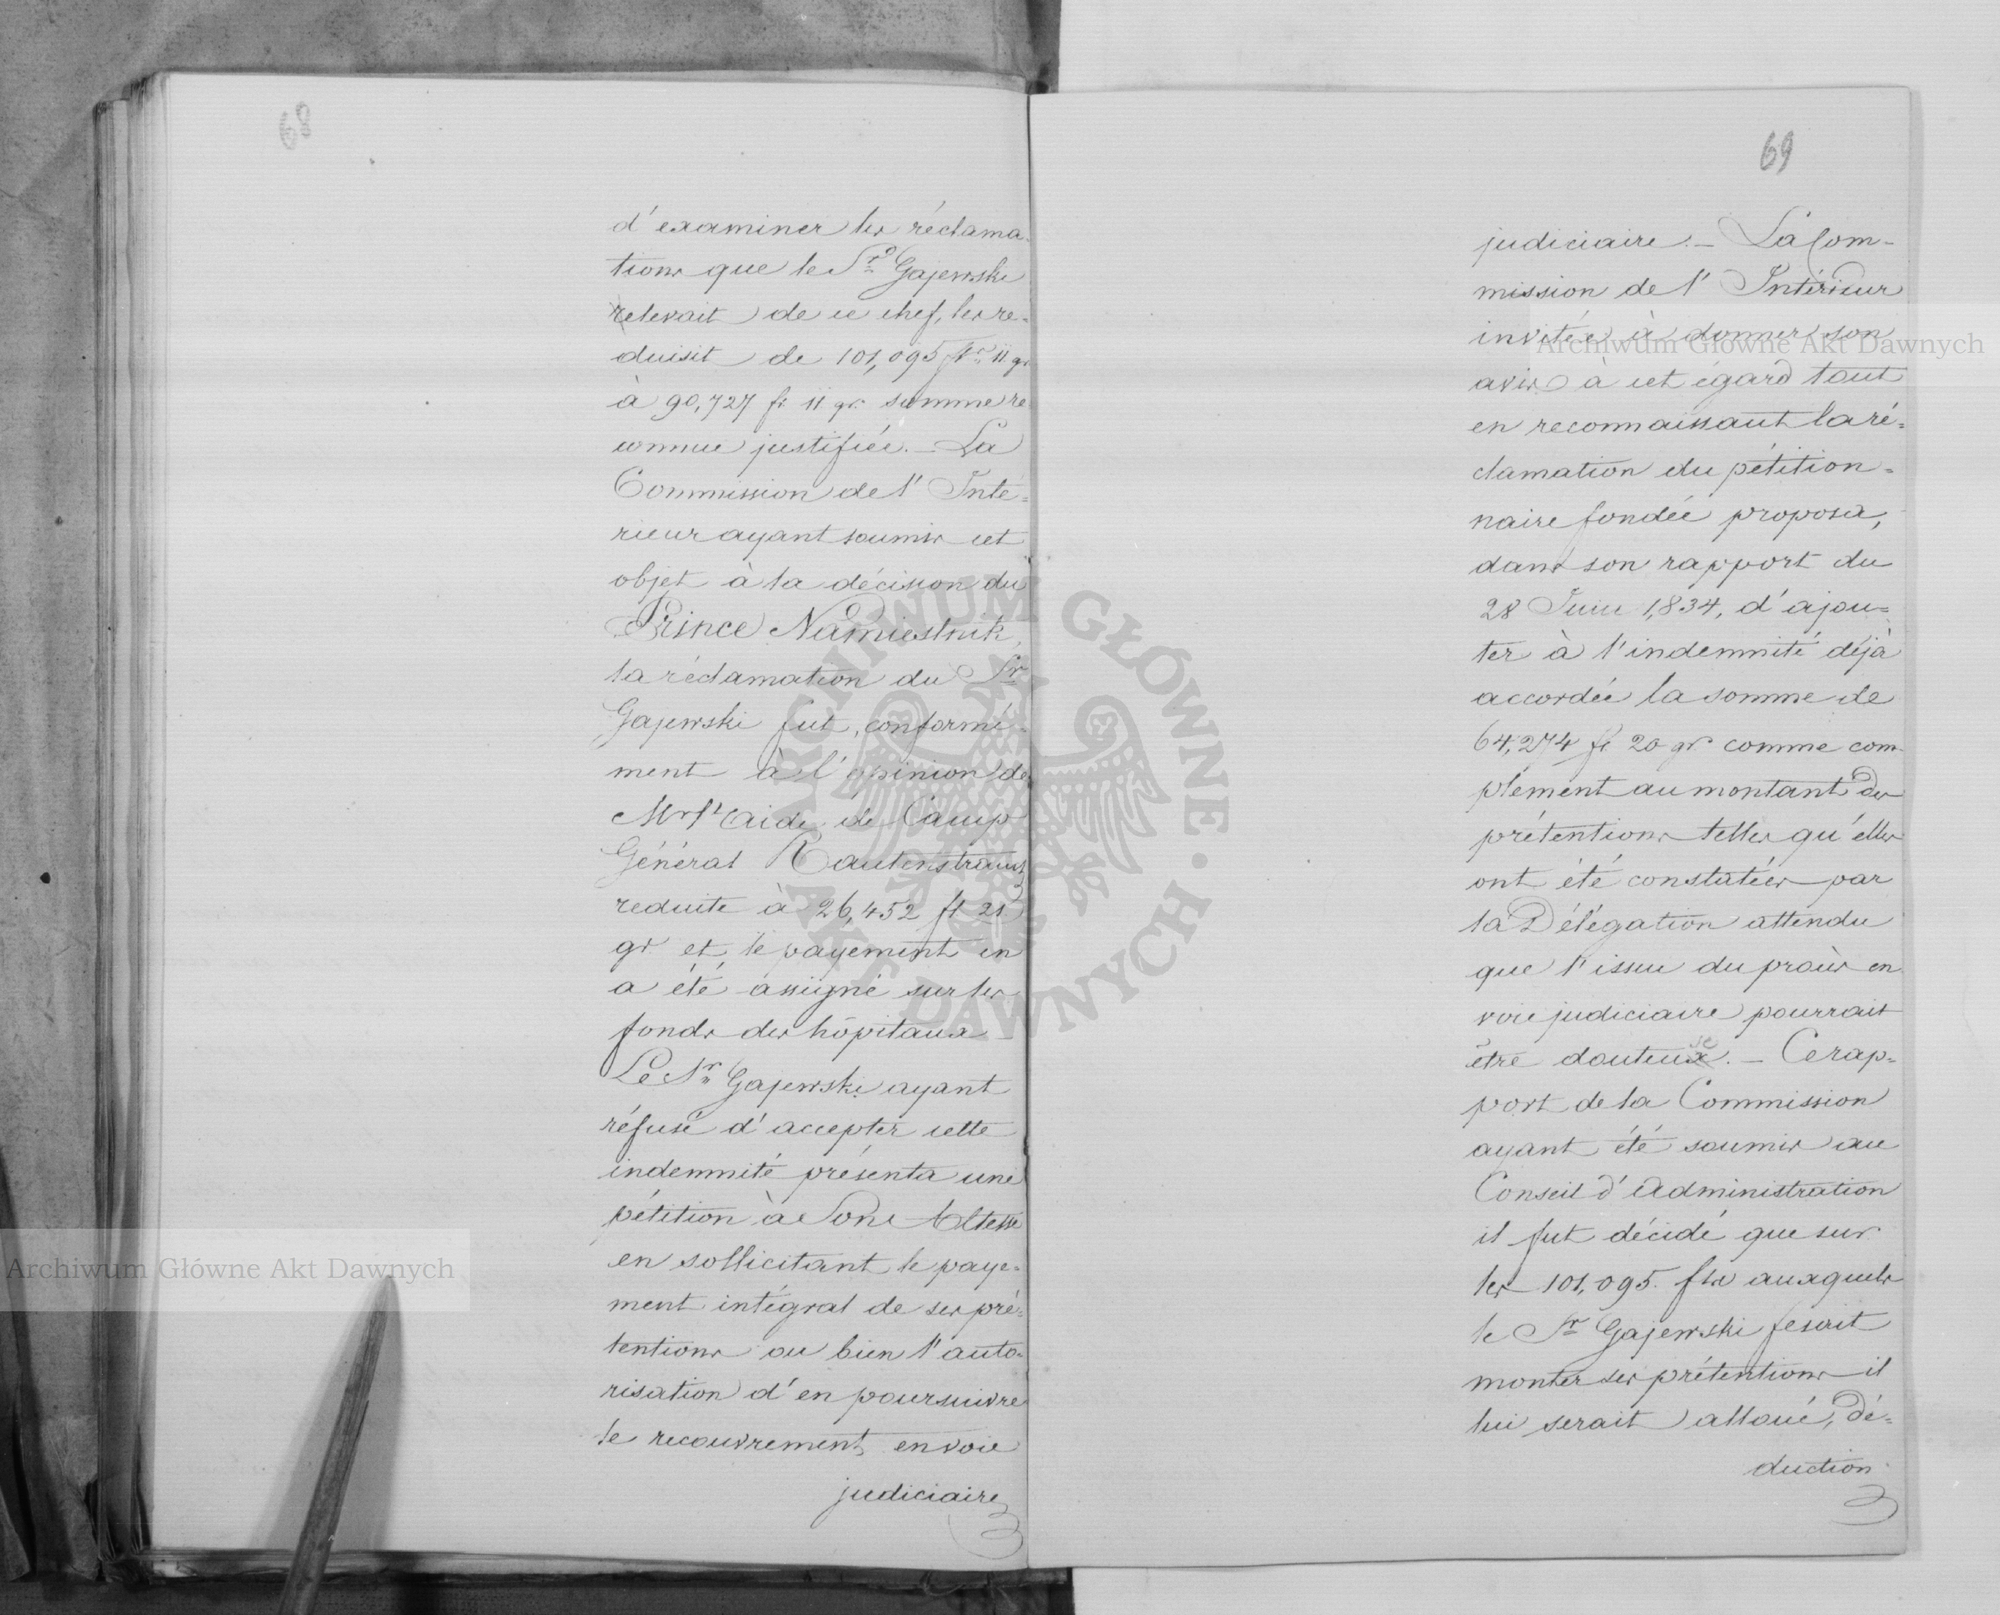 68
d'examiner les réclama-
tions que le Sr Gajewski
relevait de ce chef, les re-
duisit de 101,095 flr 11 gr
à 90,727 fl 11 gr somme re
connue justifiée. – La
Commission de l'Inté-
rieur ayant soumis cet
objet à la décision du
Prince Namiestnik,
la réclamation du Sr
Gajewski fut, conformé-
ment à l'opinion de
Mr l'aide de Camp
Général Rautenstrauch
reduite à 26,452 fl 21
gr et le payement en
a été assigné sur les
fonds des hôpitaux
Le Sr Gajewski ayant
réfusé d'accepter cette
indemnité présenta une
pétition à Son Altesse
en sollicitant le paye-
ment intégral de ses pré-
tentions ou bien l'auto-
risation d'en poursuivre
le recouvrement en voie
judiciaire
69
judiciaire. – La Com-
mission de l'Intérieur
invitée à donner son
avis à cet égard tout
en reconnaissant la ré-
clamation du pétition-
naire fondée proposa,
dans son rapport du
28 Juin 1,834, d'ajou-
ter à l'indemnité déjà
accordée la somme de
64,274 fl 20 gr comme com-
plément au montant des
prétentions telles qu'elles
ont été constatées par
la Délégation attendu
que l'issue du procès en
voie judiciaire pourrait
être douteuse. – Ce rap-
port de la Commission
ayant été soumis au
Conseil d'Administration
il fut décidé que sur
les 101,095. fls auxquels
le Sr Gajewski fesait
monter ses prétentions il
lui serait alloué, dé-
duction
Archiwum Główne Akt Dawnych
Archiwum Główne Akt Dawnych
ARCHIWUM GŁÓWNE • AKT DAWNYCH •